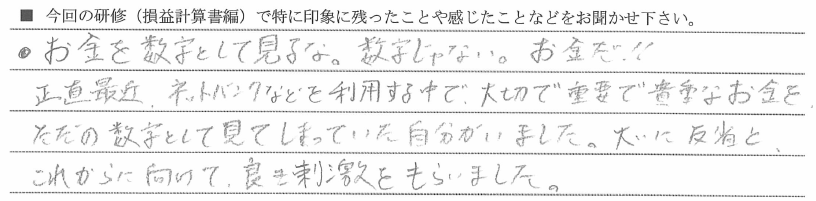 ■ 今回の研修（損益計算書編）で特に印象に残ったことや感じたことなどをお聞かせ下さい。
● お金を数字として見るな。数字じゃない。お金だ!!
正直最近、ネットバンクなどを利用する中で、大切で重要で貴重なお金を、
ただの数字として見てしまっていた自分がいました。大いに反省と、
これからに向けて、良き刺激をもらいました。